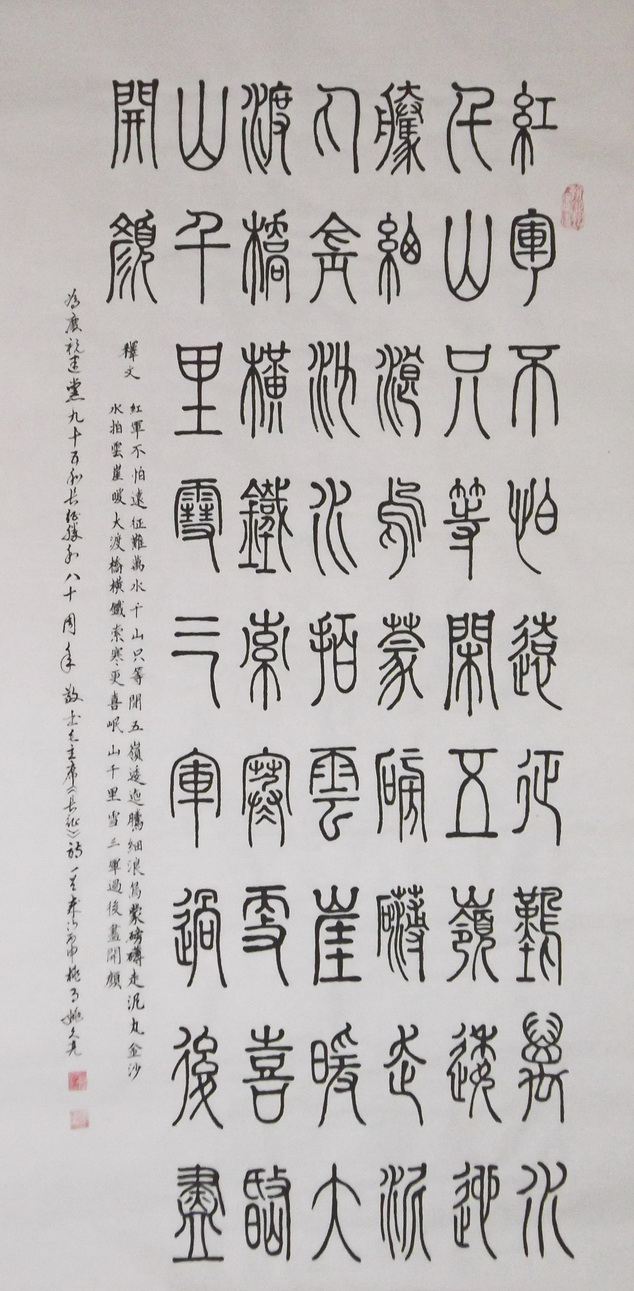 紅軍不怕遠征難萬水
千山只等閑五嶺逶迤
騰細浪烏蒙磅礴走泥
丸金沙水拍雲崖暖大
渡橋橫鐵索寒更喜岷
山千里雪三軍過後盡
開顏
釋文
紅軍不怕遠征難萬水千山只等閑五嶺逶迤騰細浪烏蒙磅礴走泥丸金沙
水拍雲崖暖大渡橋橫鐵索寒更喜岷山千里雪三軍過後盡開顏
為慶祝建黨九十五和長征勝利八十周年敬書毛主席《長征》詩一首 丙申桃月姚文亮